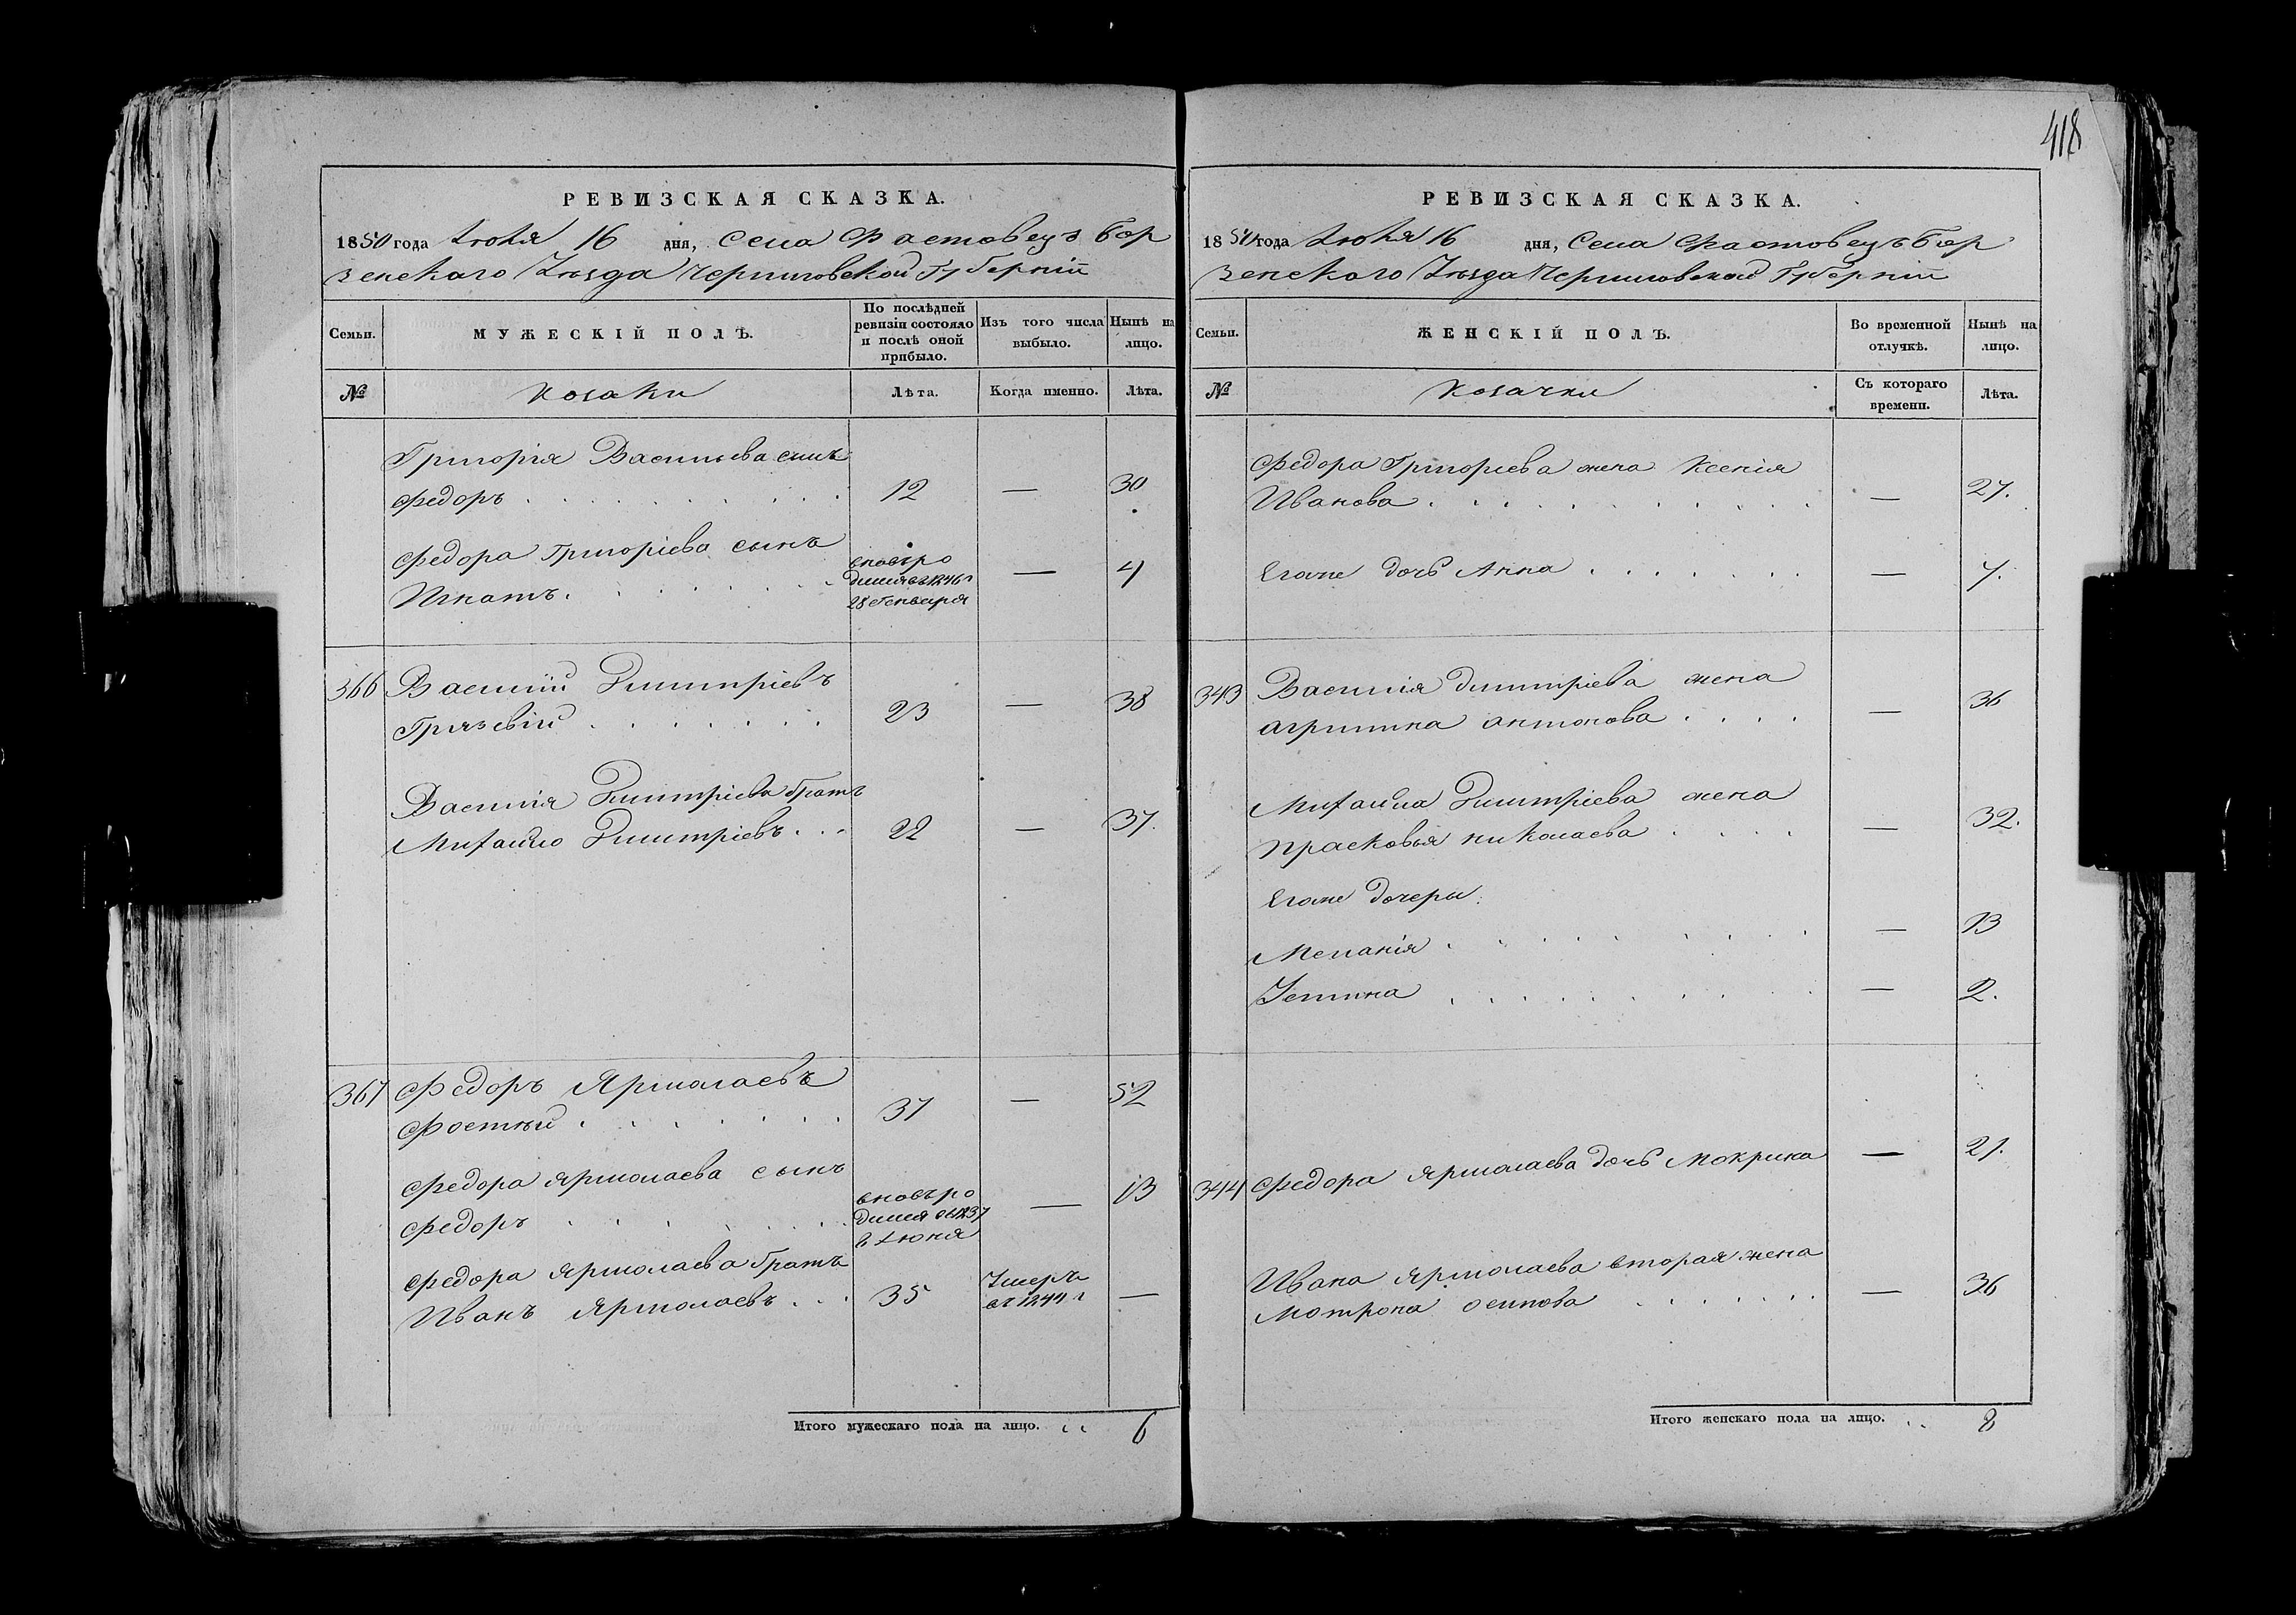 418
РЕВИЗСКАЯ СКАЗКА.
1850 года Июля 16 дня, Села Фастовецъ Бор
зенскаго Уѣзда Черниговской Губерніи
Семьи.
МУЖЕСКІЙ ПОЛЪ.
По послѣдней ревизіи состояло и послѣ оной прибыло.
Изъ того числа выбыло.
Нынѣ на лицо.
№
Козаки
Лѣта.
Когда именно.
Лѣта.
Григорія Васильева сынъ
Федоръ 12 — 30
Федора Григоріева сынъ
Игнатъ вновьро дился въ 1846 г 28 Генваря — 4
366 Василій Димитріевъ
23 — 38
Василія Димитріева братъ
Михайло Димитріевъ 22 — 37.
367 Федоръ Ярмолаевъ
37 — 52
Федора Ярмолаева сынъ
Федоръ вновьро дился въ 1837 Іюня — 13
Федора Ярмолаева братъ
Иванъ Ярмолаевъ 35 Умеръ въ 1844 г —
Итого мужескаго пола на лицо. 6
РЕВИЗСКАЯ СКАЗКА.
1850 года Июля 16 дня, Села Фастовецъ Бор
зенскаго Уѣзда Черниговской Губерніи
Семьи.
ЖЕНСКІЙ ПОЛЪ.
Во временной отлучкѣ.
Нынѣ на лицо.
№
Козачки
Съ котораго времени.
Лѣта.
Федора Григоріева жена Ксенія
Иванова — 27.
Егоже дочь Анна — 7.
343 Василія Димитріева жена
Агрипина Антонова — 36
Михайла Димитріева жена
Прасковья Николаева — 32.
Егоже дочеры:
Меланія — 13
Устина — 2.
344 Федора Ярмолаева дочь Мокрина — 21.
Ивана Ярмолаева вторая жена
Мотрона Осипова — 36
Итого женскаго пола на лицо. 8